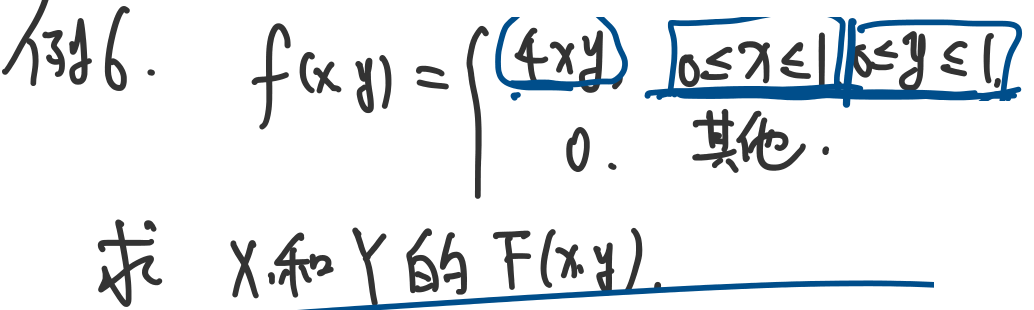 例6. f(x y) = { 4xy, 0≤x≤1, 0≤y≤1.
0. 其他.
求 X和Y的 F(x,y).